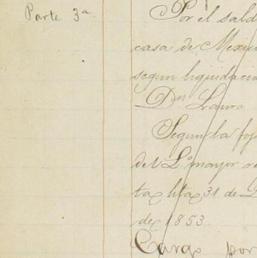 Parte 3ª
Por el sald
casa de Mexico
segun liquidacio
Dn Lauro
Segun la foj
del Lº mayor re
ta hta 31 de D
de 1853
Cargo por